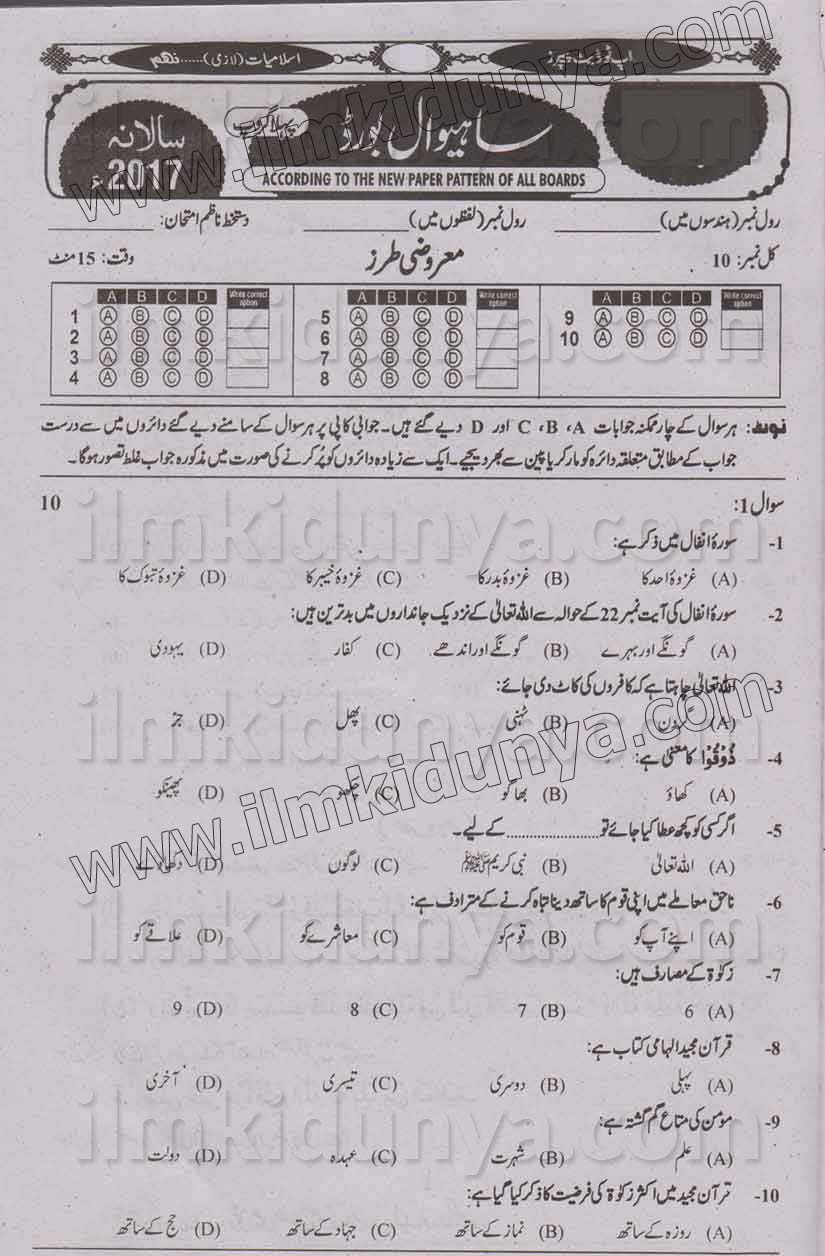 اپ ٹو ڈیٹ پیپرز
اسلامیات (لازمی).....نہم
ساہیوال بورڈ
پہلا گروپ
سالانہ
2017ء
ACCORDING TO THE NEW PAPER PATTERN OF ALL BOARDS
رول نمبر (ہندسوں میں) ____________ رول نمبر (لفظوں میں) ____________ دستخط ناظم امتحان: ____________
کل نمبر: 10 معروضی طرز وقت: 15 منٹ
A B C D Write correct option A B C D Write correct option A B C D Write correct option
1 A B C D 5 A B C D 9 A B C D
2 A B C D 6 A B C D 10 A B C D
3 A B C D 7 A B C D
4 A B C D 8 A B C D
نوٹ: ہر سوال کے چار ممکنہ جوابات A ، B ، C اور D دیے گئے ہیں۔ جوابی کاپی پر ہر سوال کے سامنے دیے گئے دائروں میں سے درست
جواب کے مطابق متعلقہ دائرہ کو مارکر یا پین سے بھر دیجیے۔ ایک سے زیادہ دائروں کو پُر کرنے کی صورت میں مذکورہ جواب غلط تصور ہوگا۔
سوال 1: 10
1- سورۂ انفال میں ذکر ہے:
(A) غزوۂ احد کا (B) غزوۂ بدر کا (C) غزوۂ خیبر کا (D) غزوۂ تبوک کا
2- سورۂ انفال کی آیت نمبر 22 کے حوالہ سے اللہ تعالیٰ کے نزدیک جانداروں میں بدترین ہیں:
(A) گونگے اور بہرے (B) گونگے اور اندھے (C) کفار (D) یہودی
3- اللہ تعالیٰ چاہتا ہے کہ کافروں کی کاٹ دی جائے:
(A) گردن (B) ٹہنی (C) پھل (D) جڑ
4- ذُوْقُوْا کا معنی ہے:
(A) کھاؤ (B) بھاگو (C) چکھو (D) پھینکو
5- اگر کسی کو کچھ عطا کیا جائے تو .................. کے لیے۔
(A) اللہ تعالیٰ (B) نبی کریم ﷺ (C) لوگوں (D) دکھاوے
6- ناحق معاملے میں اپنی قوم کا ساتھ دینا تباہ کرنے کے مترادف ہے:
(A) اپنے آپ کو (B) قوم کو (C) معاشرے کو (D) علاقے کو
7- زکوٰۃ کے مصارف ہیں:
(A) 6 (B) 7 (C) 8 (D) 9
8- قرآن مجید الہامی کتاب ہے:
(A) پہلی (B) دوسری (C) تیسری (D) آخری
9- مومن کی متاع گم گشتہ ہے:
(A) علم (B) شہرت (C) عہدہ (D) دولت
10- قرآن مجید میں اکثر زکوٰۃ کی فرضیت کا ذکر کیا گیا ہے:
(A) روزہ کے ساتھ (B) نماز کے ساتھ (C) جہاد کے ساتھ (D) حج کے ساتھ
www.ilmkidunya.com
www.ilmkidunya.com
ilmkidunya.com
ilmkidunya.com
ilmkidunya.com
ilmkidunya.com
ilmkidunya.com
ilmkidunya.com